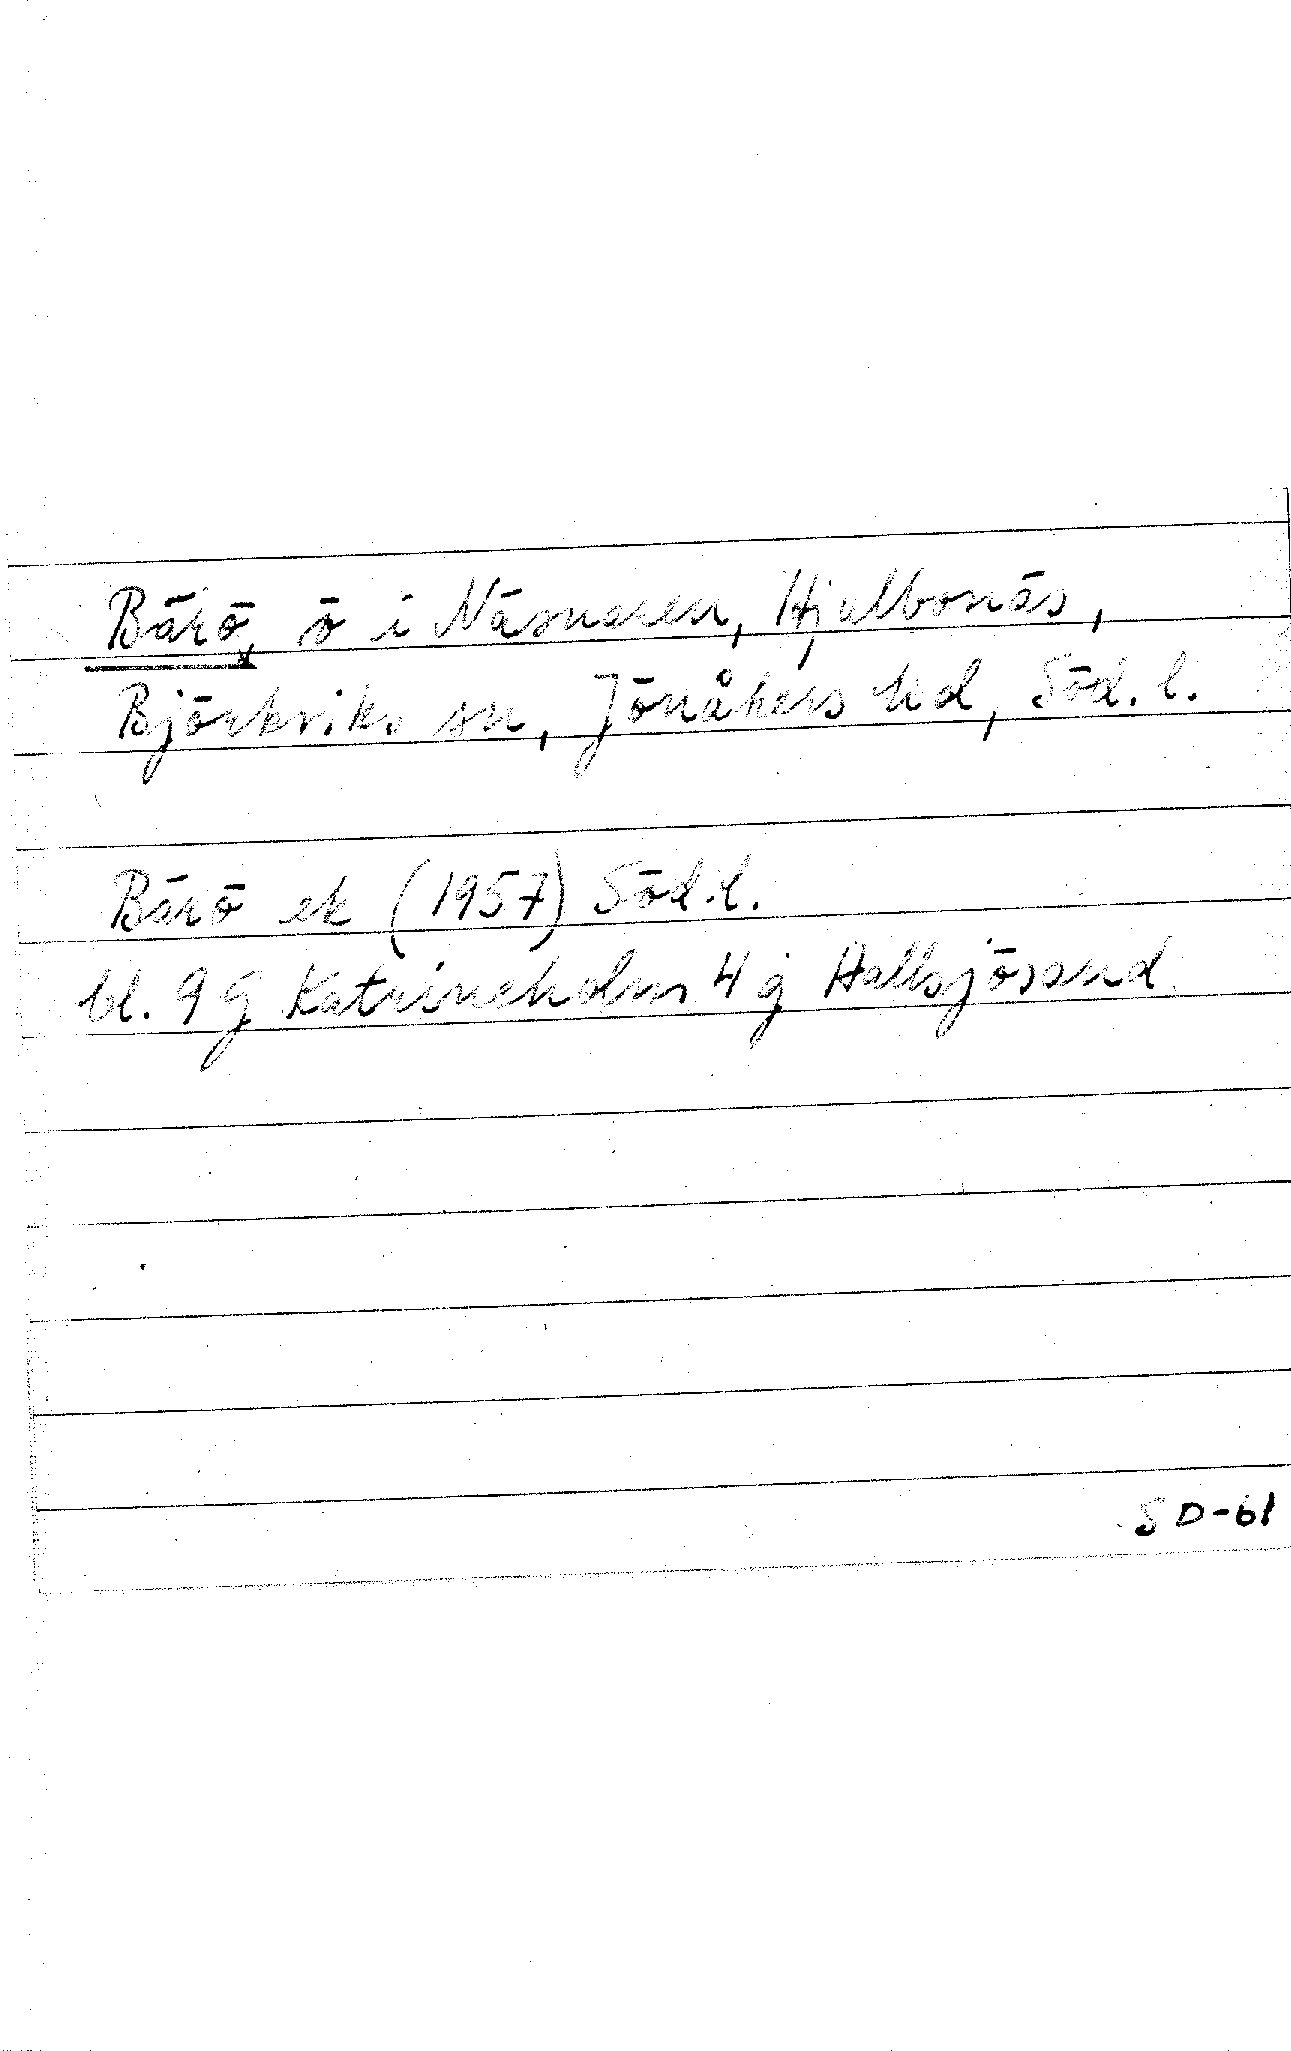 Bärö, ö i Näsnaren, Hjälbonäs,
Björkviks sn, Jönåkers hd, Söd. l.
Bärö ek (1957) Söd. l.
bl. 9G Katrineholm 4 g Hallsjösand
SD-61